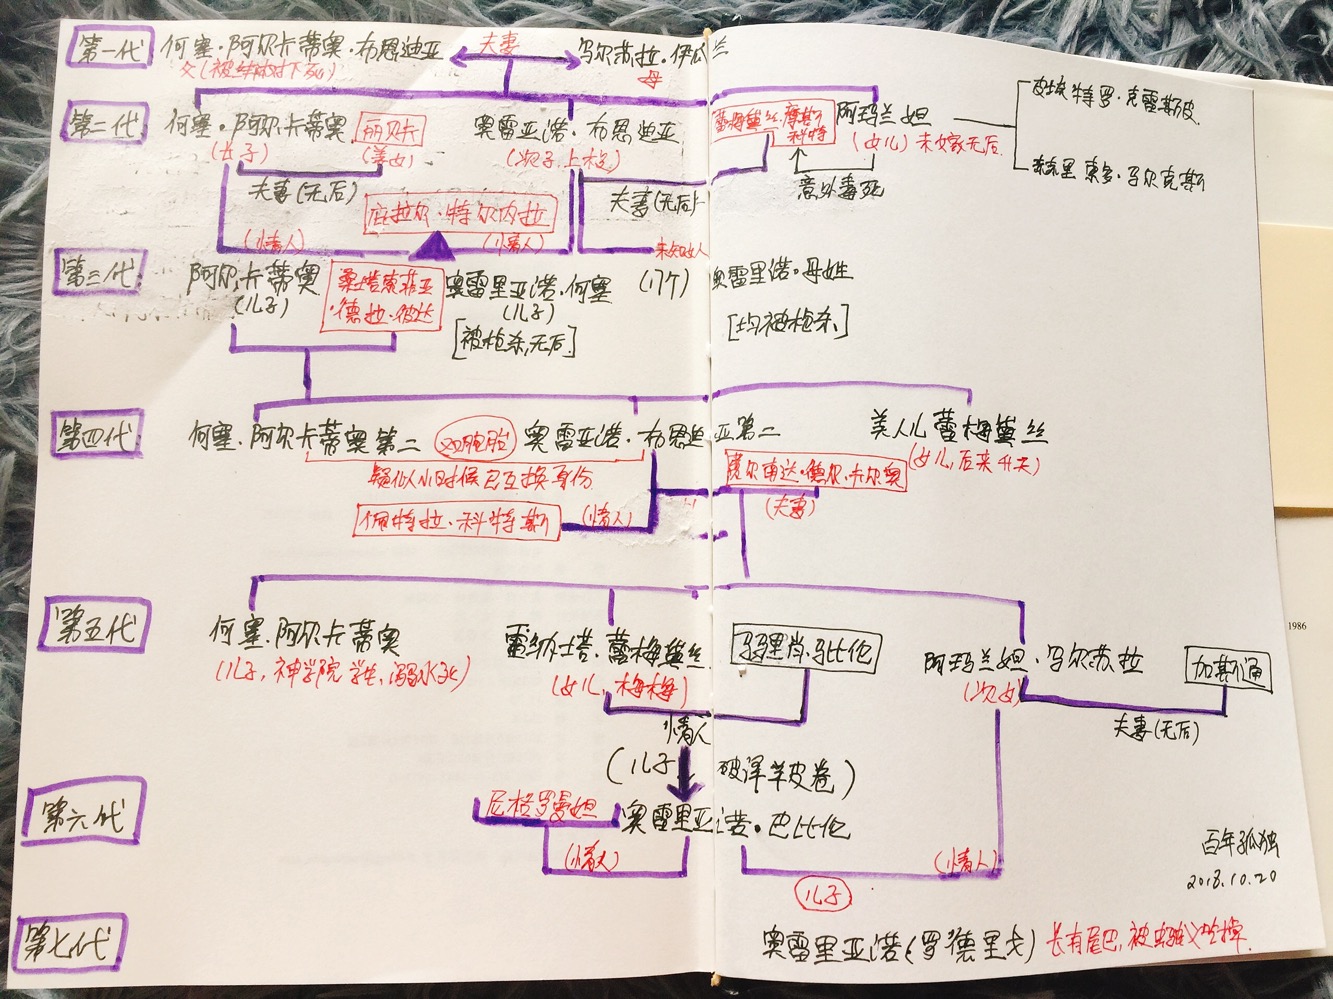 第一代 何塞·阿尔卡蒂奥·布恩迪亚 夫妻 乌尔苏拉·伊瓜兰
父(被绑树下死) 母
第二代 何塞·阿尔卡蒂奥 丽贝卡 奥雷亚诺·布恩迪亚 蕾梅黛丝·摩斯科特 阿玛兰妲 皮埃特罗·克雷斯皮
(长子) (养女) (次子,上校) (女儿)未嫁无后
赫里奈多·马尔克斯
夫妻(无后) 夫妻(无后) 意外毒死
庇拉尔·特尔内拉
(情人) (情人) 未知女人
第三代 阿尔卡蒂奥 桑塔索菲亚·德拉·彼达 奥雷里亚诺·何塞 (17个) 奥雷里诺·母姓
(儿子) (儿子)
[被枪杀,无后] [均被枪杀]
第四代 何塞·阿尔卡蒂奥第二 双胞胎 奥雷亚诺·布恩迪亚第二 美人儿蕾梅黛丝
疑似小时候已互换身份 费尔南达·德尔·卡尔奥 (女儿,后来升天)
佩特拉·科特斯 (情人) (夫妻)
第五代 何塞·阿尔卡蒂奥 雷纳塔·蕾梅黛丝 马里肖·马比伦 阿玛兰妲·乌尔苏拉 加斯通
(儿子,神学院学生,溺水死) (女儿,梅梅) (次女)
情人 夫妻(无后)
(儿子, 破译羊皮卷)
第六代 尼格罗曼妲 奥雷里亚诺·巴比伦
(情人) (情人)
儿子
第七代 奥雷里亚诺(罗德里戈) 长有尾巴,被蚂蚁吃掉.
百年孤独
2018.10.20
1986